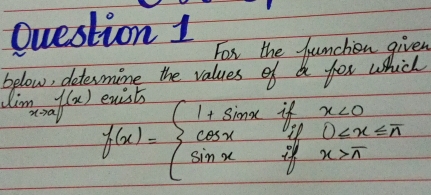 Question 1
For the function given
below, determine the values of a for which
lim f(x) exists
x→a
1 + sinx if x<0
f(x) = { cosx if 0<x≤π
sin x if x>π